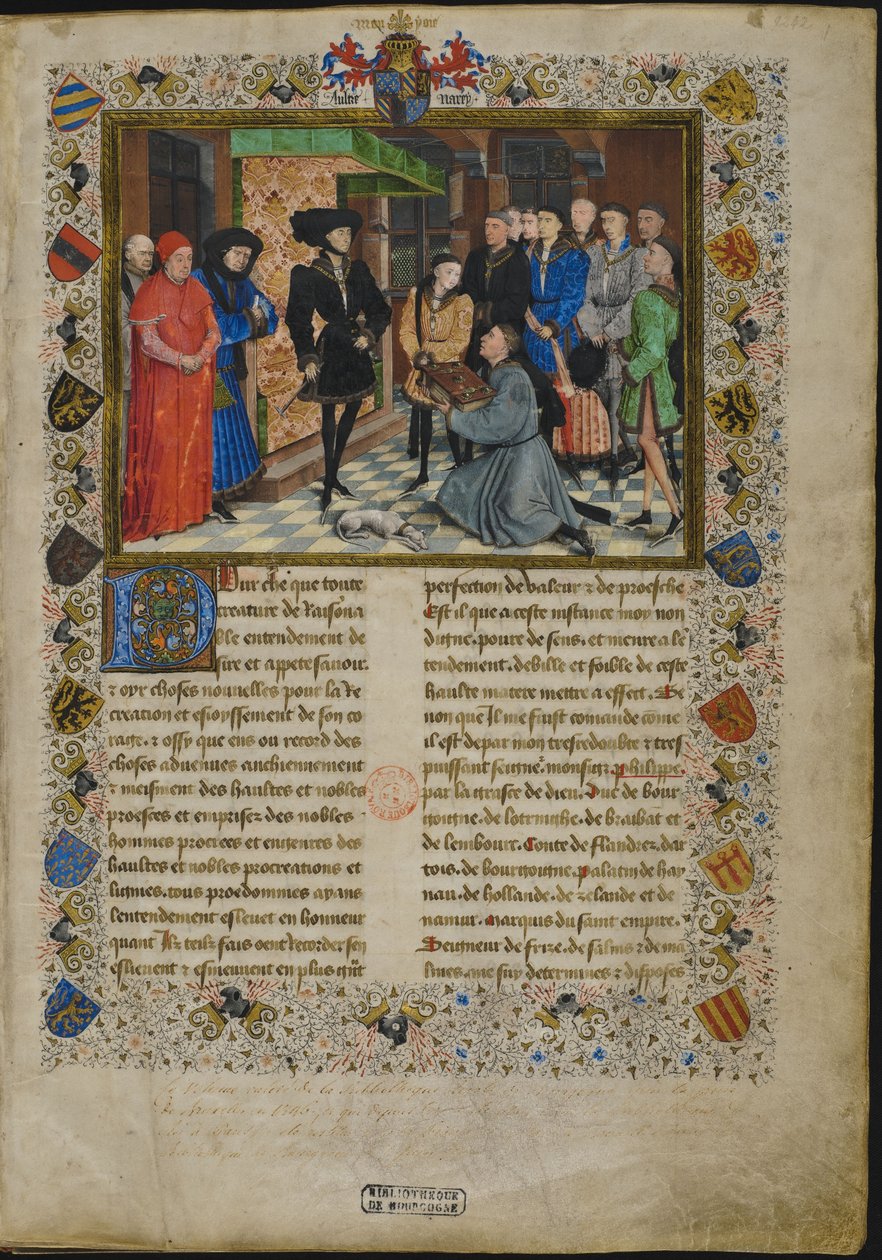 Mon yoie
Aultre Narey
Pour che que toute
creature de Raisona
ble entendement de
sire et appete savoir
⁊ oyr choses nouvelles pour la Re
creation et esioyssement de son co
rage. ⁊ ossy que ens ou record des
choses advenues anchiennement
⁊ meisment des haultes et nobles
proesces et emprisez des nobles
hommes procrees et engenres des
haultes et nobles procreations et
lignies. tous proedommes ayans
lentendement eslevet en honneur
quant Ilz teilz fais oent Recorder sen
eslievent ⁊ esmeuvent en plus gñt
perfection de valeur ⁊ de proesche
Est il que a ceste instance moy non
digne. povre de sens. et menre a le
tendement. debille et foible de ceste
haulte matere mettre a effect. Se
non que Il me fuist comande cõme
il est depar mon tresredoubte ⁊ tres
puissant seigneʳ. monsigʳ. phelippe.
par la grasce de dieu. Duc de bour
goingne. de lotringhe. de braibãt et
de lembourc. Conte de flandrez. dar
tois. de bourgoingne. palatin de hay
nau. de hollande. de zelande et de
namur. Marquis du saint empire.
Seigneur de frize. de salins ⁊ de ma
lines. me suy determines ⁊ disposes
BIBLIOTHÈQUE
DE BOURGOGNE